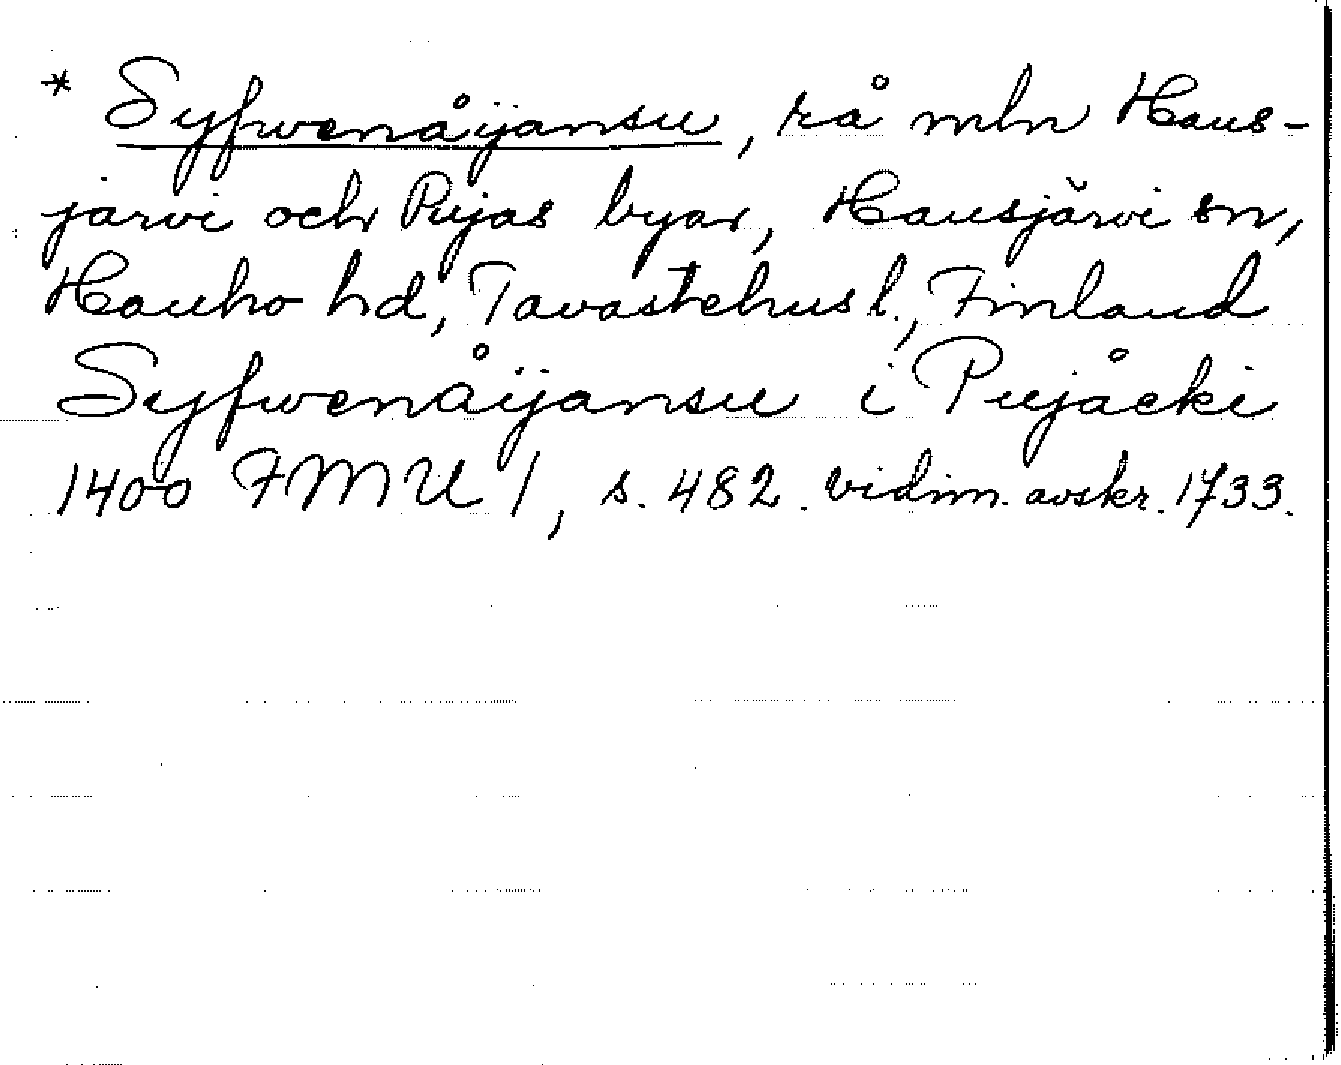 * Syfwenåijansu, rå mln Haus-
järvi och Pujas byar, Hausjärvi sn,
Hauho hd, Tavastehus l., Finland
Syfwenåijansu i Pujåcki
1400 FMU 1, s. 482. vidim. avskr. 1733.